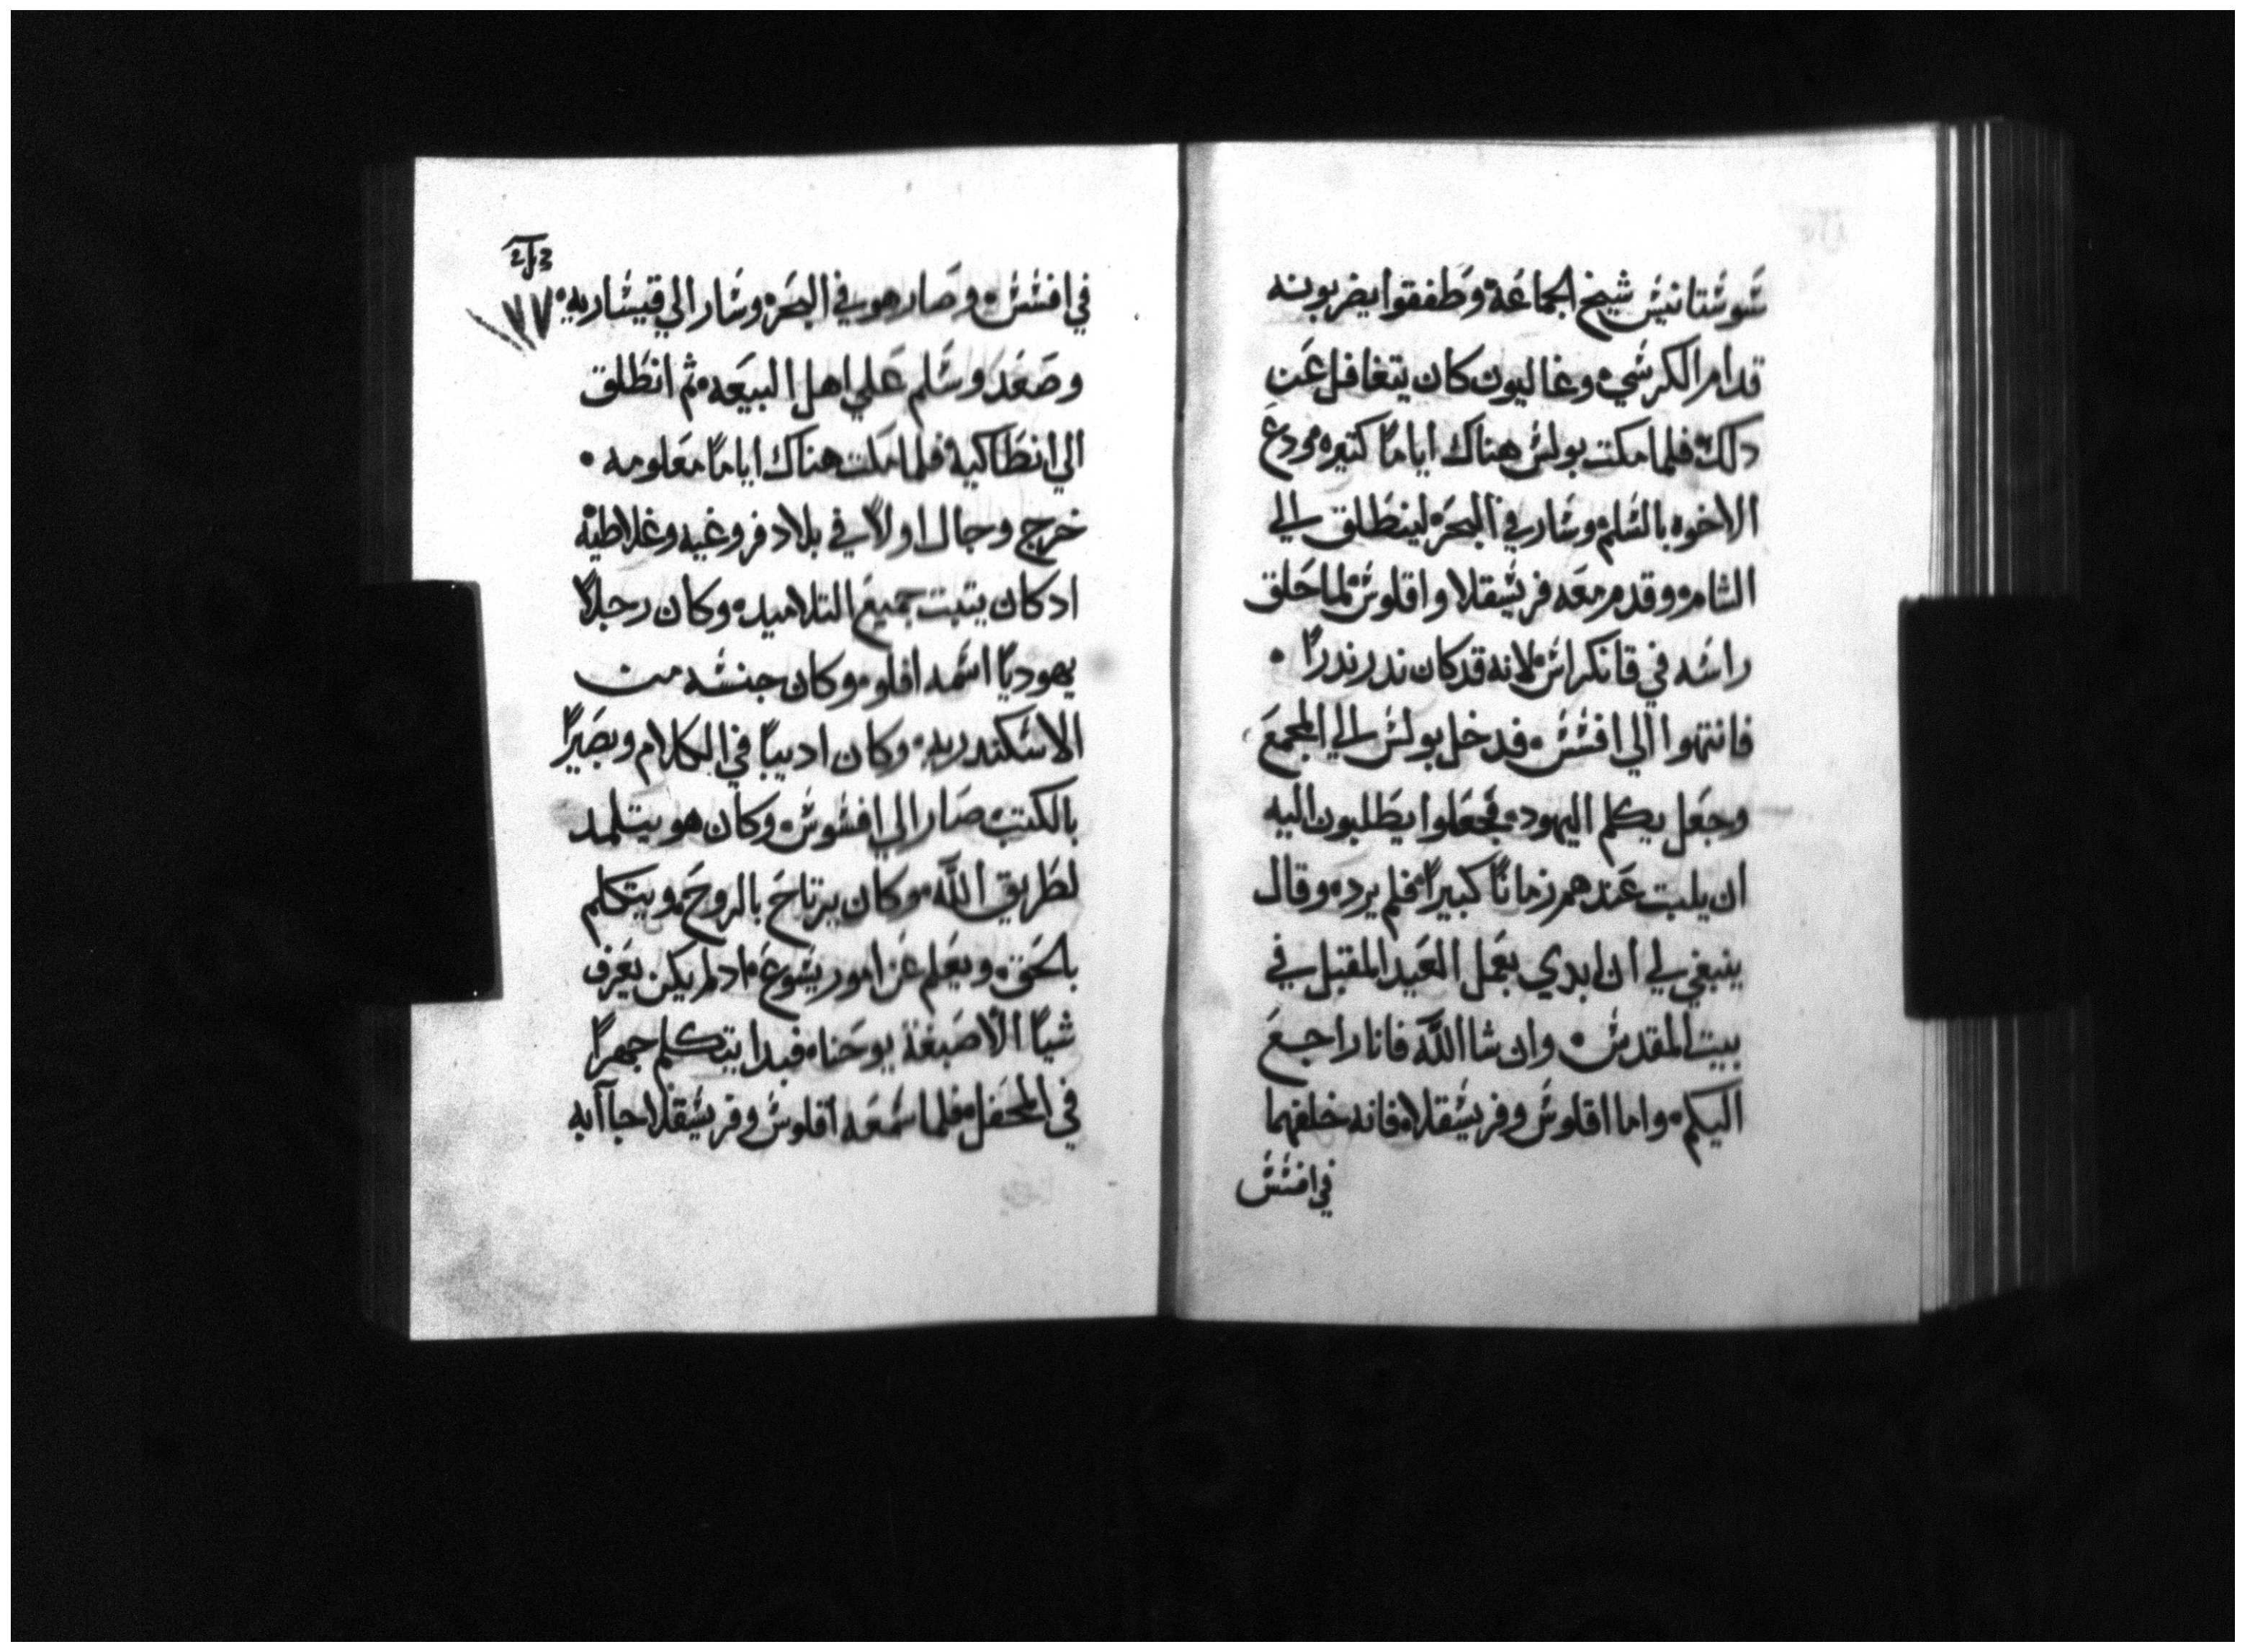 شوشتانيش شيخ الجماعة وطفقوا يضربونه
قدام الكرشي وغاليون كان يتغافل عن
دلك فلما مكت بولش هناك اياما كتيره ودع
الاخوه بالشلم وشار في البحر لينطلق الي
الشام وقدم معه فريشقلا واقلوش لما حلق
راشه في قانكراش لانه قد كان ندر ندرا
فانتهوا الي افشش فدخل بولش الي المجمع
وجعل يكلم اليهود فجعلوا يطلبون اليه
ان يلبت عندهم زمانا كبيرا فلم يرد وقال
ينبغي لي ان ابدي بعمل العيد المقبل في
بيت المقدش وان شا الله فانا راجع
اليكم واما اقلوش وفريشقلا فانه خلفهما
في افشش
في افشش وصار هو في البحر وشار الي قيشاريه
وصعد وشلم علي اهل البيعه ثم انطلق
الي انطاكيه فلما مكت هناك اياما معلومه
خرج وجال اولا في بلاد فروغيه وغلاطيه
ادكان يتبت جميع التلاميد وكان رجلا
يهوديا اشمه افلو وكان جنشه من
الاشكندريه وكان اديبا في الكلام وبصيرا
بالكتب صار الي افشوش وكان هو يتلمد
لطريق الله وكان يرتاح بالروح ويتكلم
بالحق ويعلم عن امور يشوع ادلم يكن يعرف
شيا الا صبغة يوحنا فبدا يتكلم جهرا
في المحفل فلما شمعه اقلوش وفريشقلا جاآ به